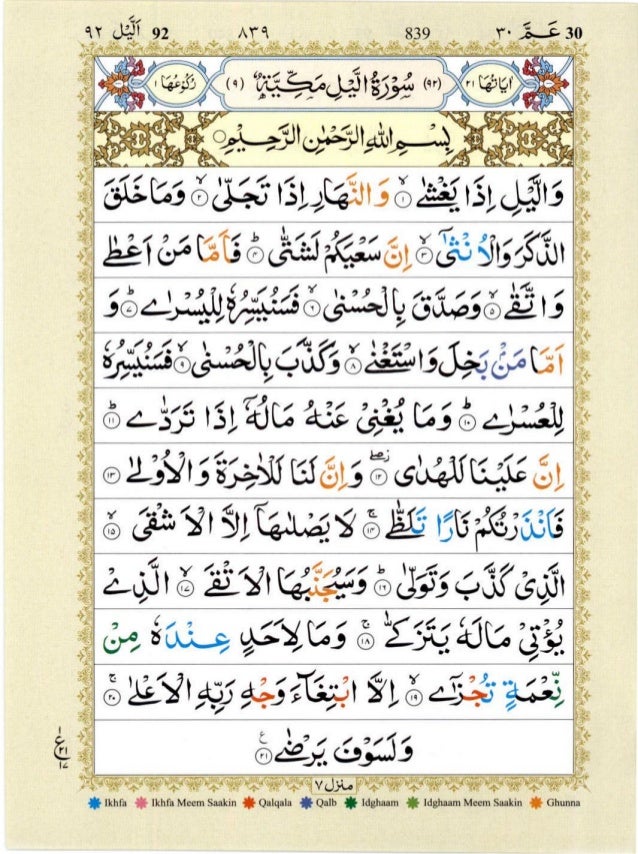 اَلَّيْل ٩٢ 92 ٨٣٩ 839 عَـمَّ ٣٠ 30
اٰيَاتُهَا ٢١ (٩٢) سُوْرَةُ الَّيْلِ مَكِّيَّةٌ (٩) رُكُوْعُهَا ١
بِسْمِ اللّٰهِ الرَّحْمٰنِ الرَّحِيْمِ
وَالَّيْلِ اِذَا يَغْشٰىۙ‏ ١ وَالنَّهَارِ اِذَا تَجَلّٰىۙ‏ ٢ وَمَا خَلَقَ
الذَّكَرَ وَالْاُنْثٰٓىۙ‏ ٣ اِنَّ سَعْيَكُمْ لَشَتّٰىؕ‏ ٤ فَاَمَّا مَنْ اَعْطٰى
وَاتَّقٰىۙ‏ ٥ وَصَدَّقَ بِالْحُسْنٰىۙ‏ ٦ فَسَنُيَسِّرُهٗ لِلْيُسْرٰىؕ‏ ٧ وَ
اَمَّا مَنْۢ بَخِلَ وَاسْتَغْنٰىۙ‏ ٨ وَكَذَّبَ بِالْحُسْنٰىۙ‏ ٩ فَسَنُيَسِّرُهٗ
لِلْعُسْرٰىؕ‏ ١٠ وَمَا يُغْنِىْ عَنْهُ مَالُهٗٓ اِذَا تَرَدّٰىؕ‏ ١١
اِنَّ عَلَيْنَا لَلْهُدٰىۖ‏ ١٢ وَاِنَّ لَنَا لَلْاٰخِرَةَ وَالْاُوْلٰى‏ ١٣
فَاَنْذَرْتُكُمْ نَارًا تَلَظّٰىۚ‏ ١٤ لَا يَصْلٰىهَاۤ اِلَّا الْاَشْقَىۙ‏ ١٥
الَّذِىْ كَذَّبَ وَتَوَلّٰىؕ‏ ١٦ وَسَيُجَنَّبُهَا الْاَتْقَىۙ‏ ١٧ الَّذِىْ
يُؤْتِىْ مَالَهٗ يَتَزَكّٰىۚ‏ ١٨ وَمَا لِاَحَدٍ عِنْدَهٗ مِنْ
نِّعْمَةٍ تُجْزٰٓىۙ‏ ١٩ اِلَّا ابْتِغَآءَ وَجْهِ رَبِّهِ الْاَعْلٰىۚ‏ ٢٠
وَلَسَوْفَ يَرْضٰى‏ ٢١
١ ع ٢١ ١٧
منزل ٧
Ikhfa Ikhfa Meem Saakin Qalqala Qalb Idghaam Idghaam Meem Saakin Ghunna